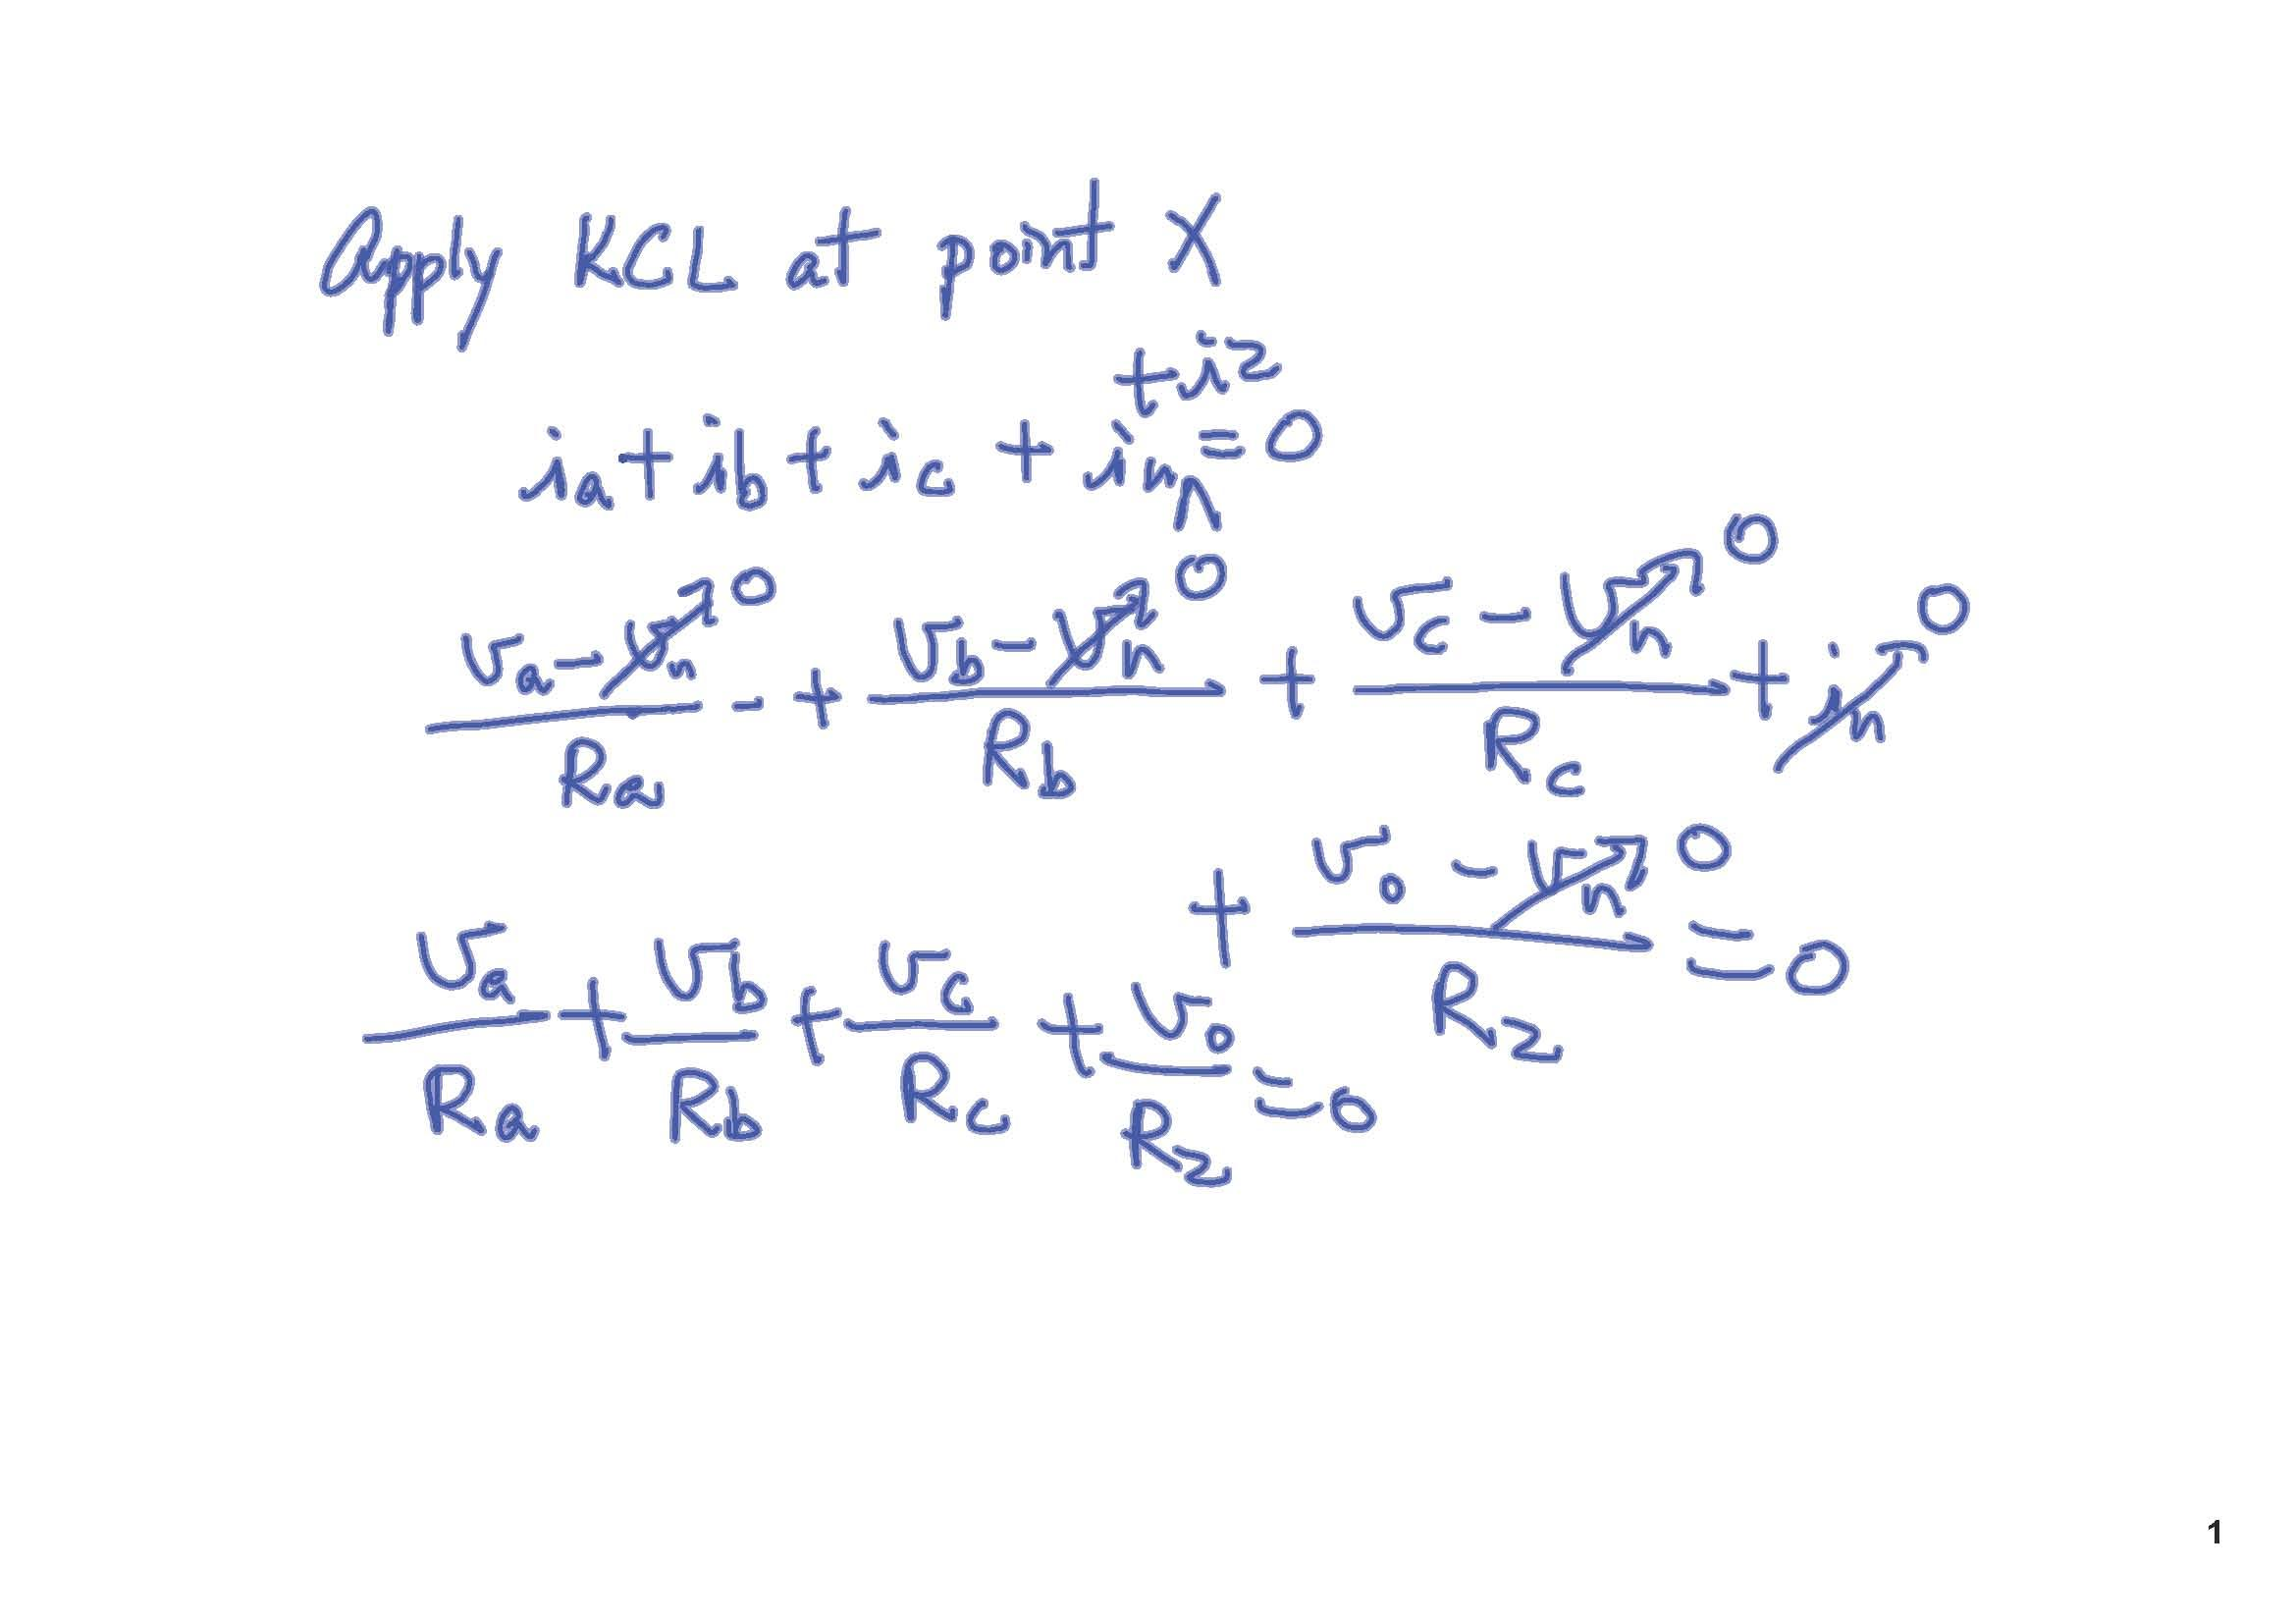 Apply KCL at point X
i_a + i_b + i_c + i_n ^ + i_2 = 0
(v_a - v_n→0)/R_a - + (v_b - v_n→0)/R_b + (v_c - v_n→0)/R_c + i_n→0
+ (v_o - v_n→0)/R_2 = 0
v_a/R_a + v_b/R_b + v_c/R_c + v_o/R_2 = 0
1